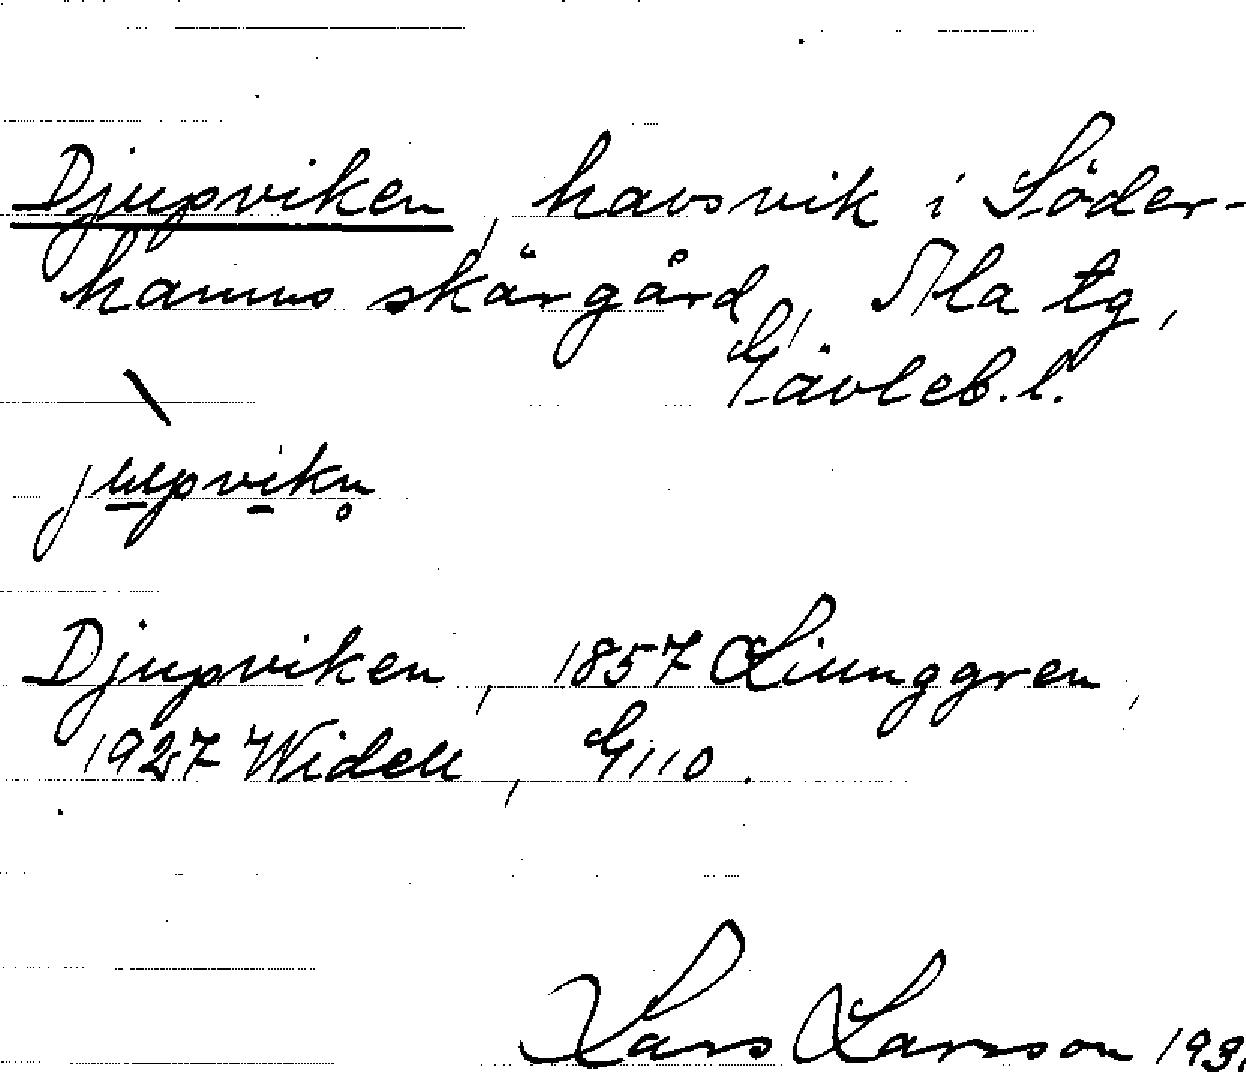 Djupviken, havsvik i Söder-
hamns skärgård, Ala tg,
Gävleb.l.
jupvikn̥
Djupviken, 1857 Ljunggren,
1927 Widell, G110.
Lars Larsson